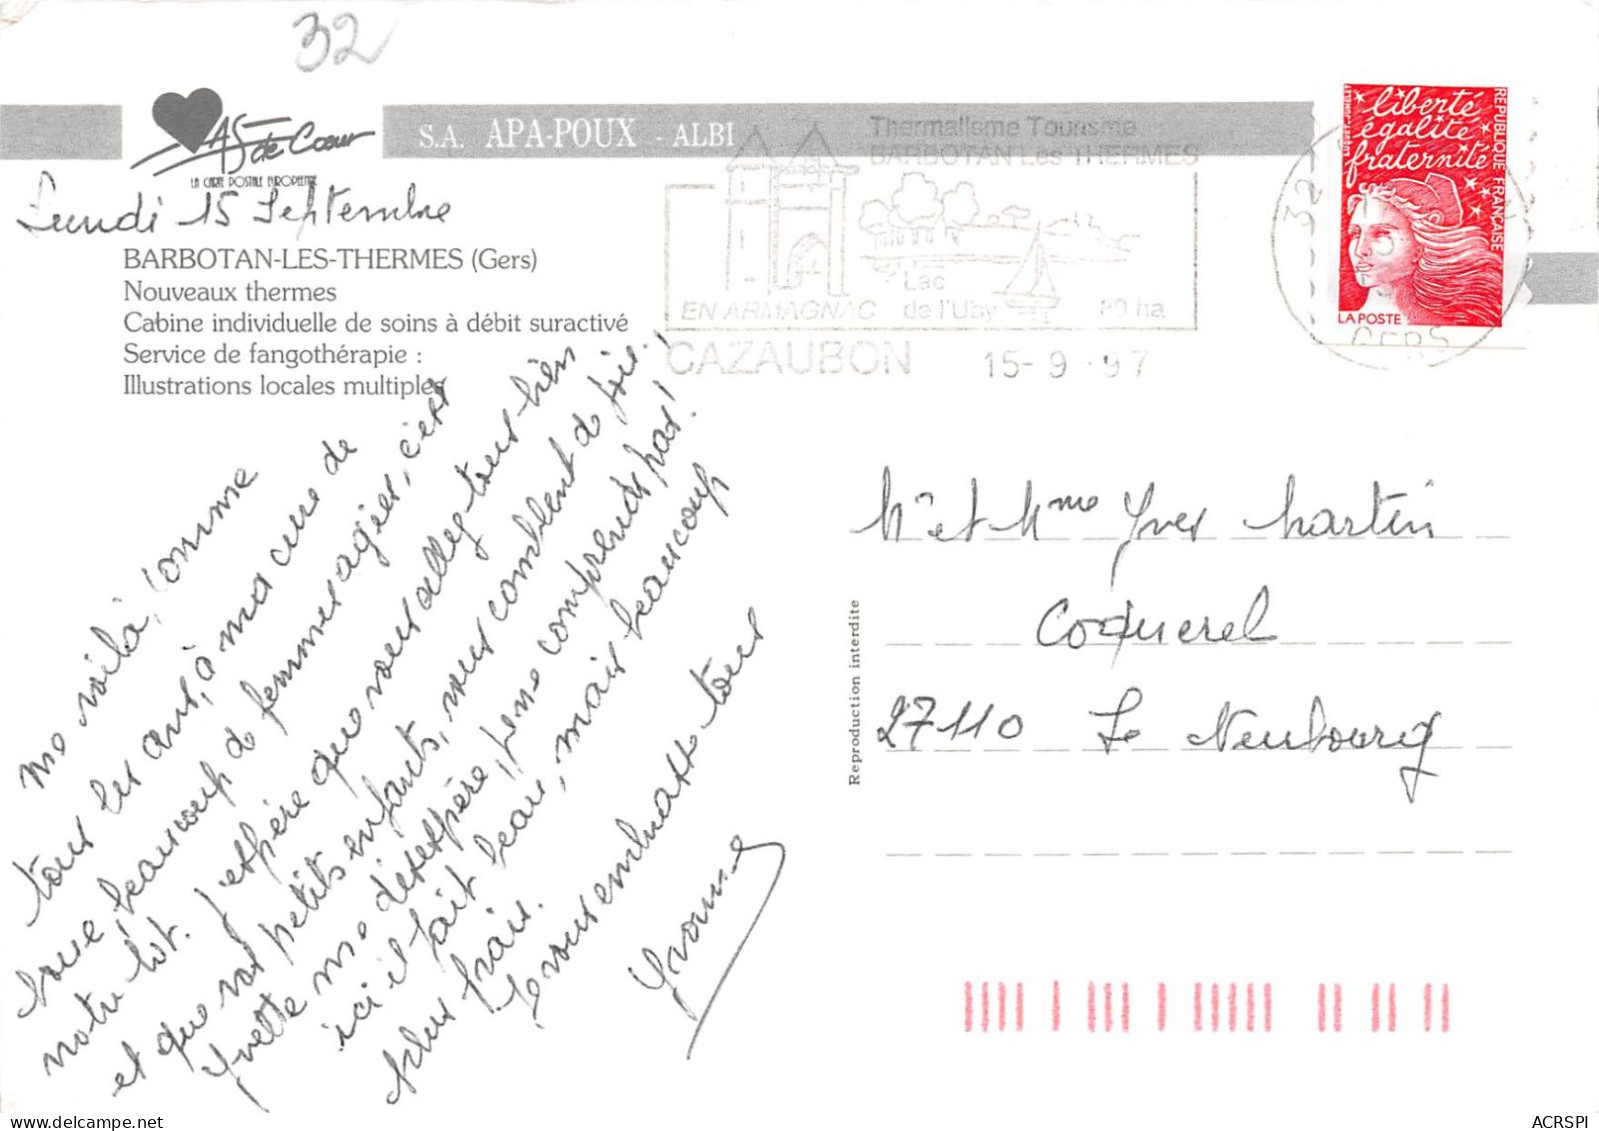 32
As de Coeur
LA CARTE POSTALE EUROPEENNE
S.A. APA-POUX - ALBI
Lundi 15 Septembre
BARBOTAN-LES-THERMES (Gers)
Nouveaux thermes
Cabine individuelle de soins à débit suractivé
Service de fangothérapie :
Illustrations locales multiples
Thermalisme Tourisme
BARBOTAN Les THERMES
Lac
EN ARMAGNAC de l'Uby 80 ha
CAZAUBON 15-9-97
32
GERS
liberté
égalité
fraternité
REPUBLIQUE FRANÇAISE
LA POSTE
me voilà, comme
tous les ans, à ma cure de
boue, beaucoup de femmes agées, c'est
notre lot. J'espère que vous allez tous bien
et que vos petits enfants, vous comblent de joie.
Yvette me désespère, je ne comprends pas !
ici il fait beau, mais beaucoup
plus frais.
Je vous embrasse tous
Yvonne
Mr et Mme Yves Martin
Coquerel
27110 Le Neubourg
Reproduction interdite
ACRSPI